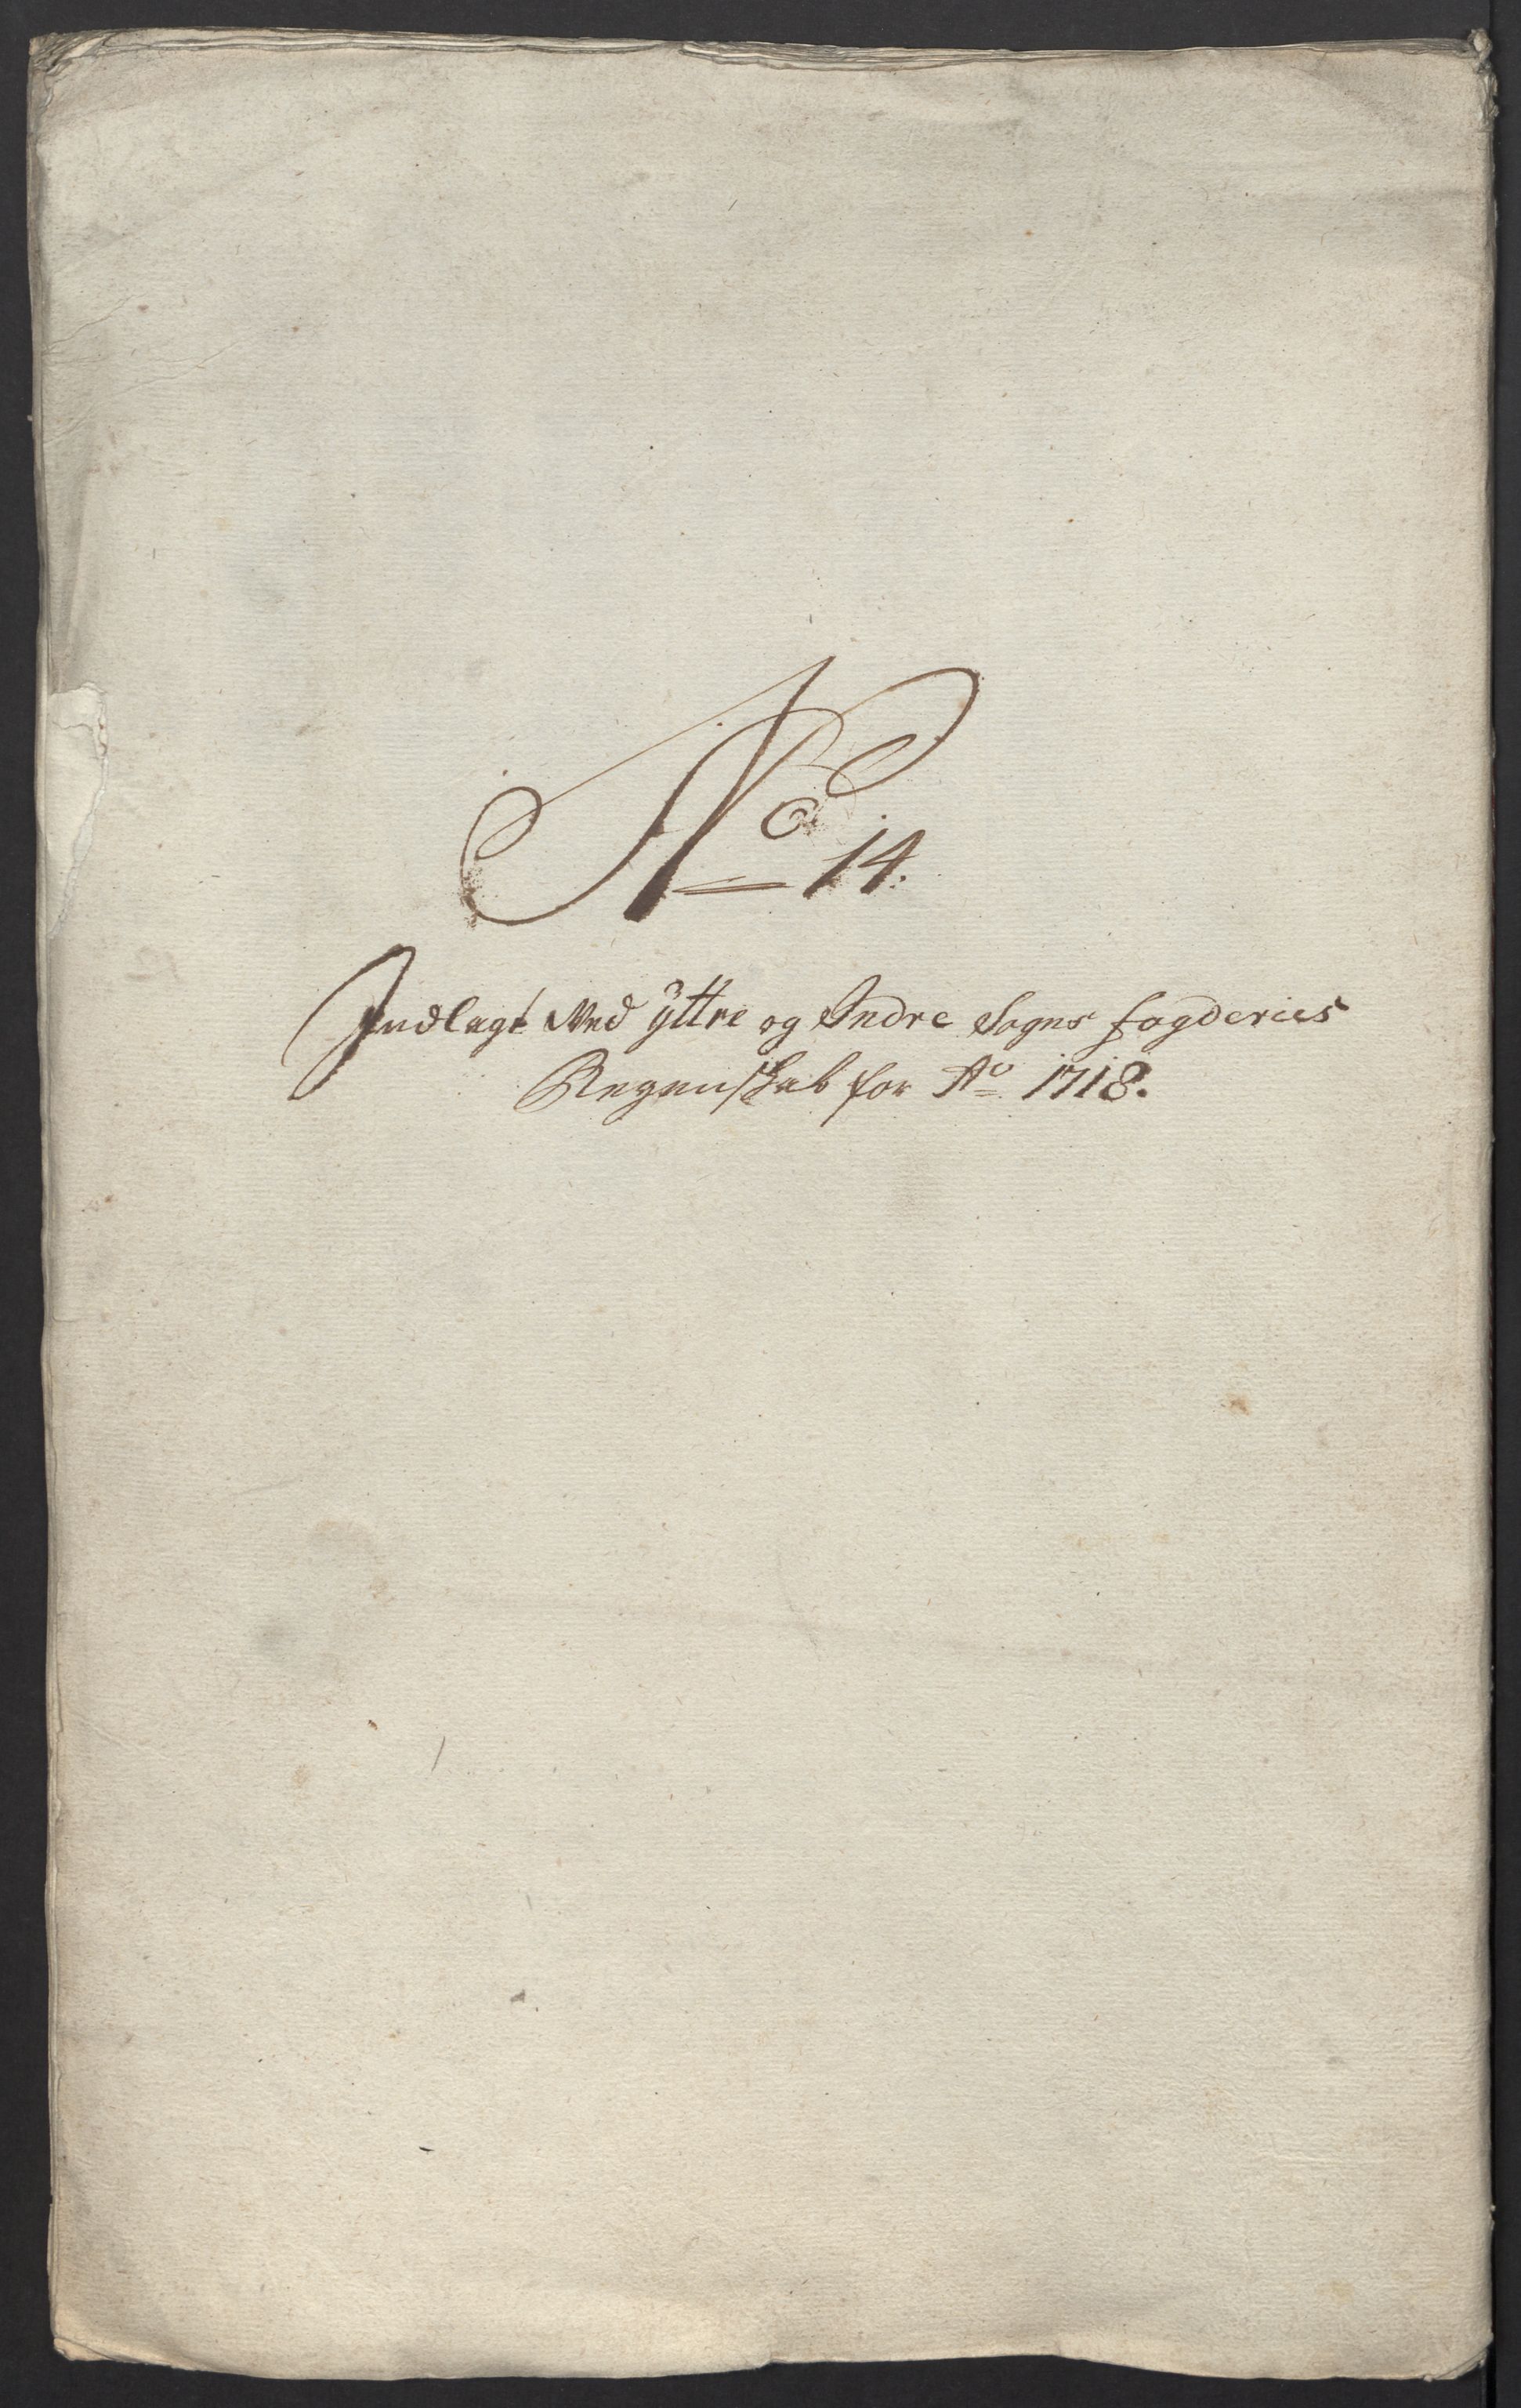 No 14.
Indlagt Med ÿttre og Indre Sogns fogderies
Regenskab for Ao 1718.